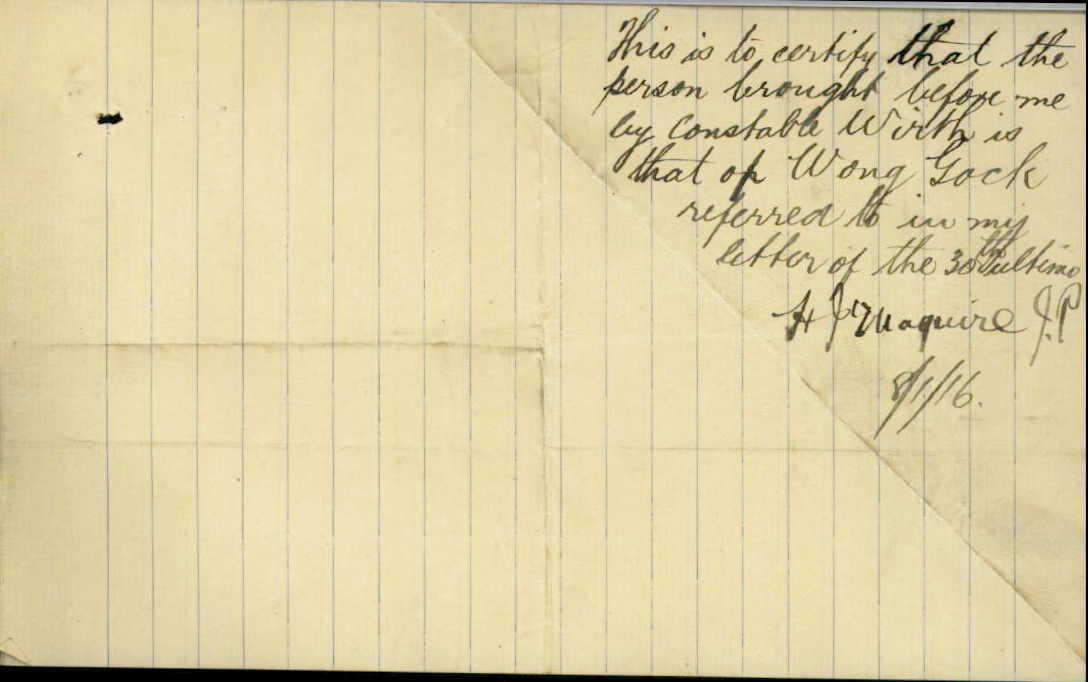 This is to certify that the
person brought before me
by Constable Wirth is
that of Wong Gock
referred to in my
letter of the 30th ultimo
H J Maquire J.P
8/1/16.